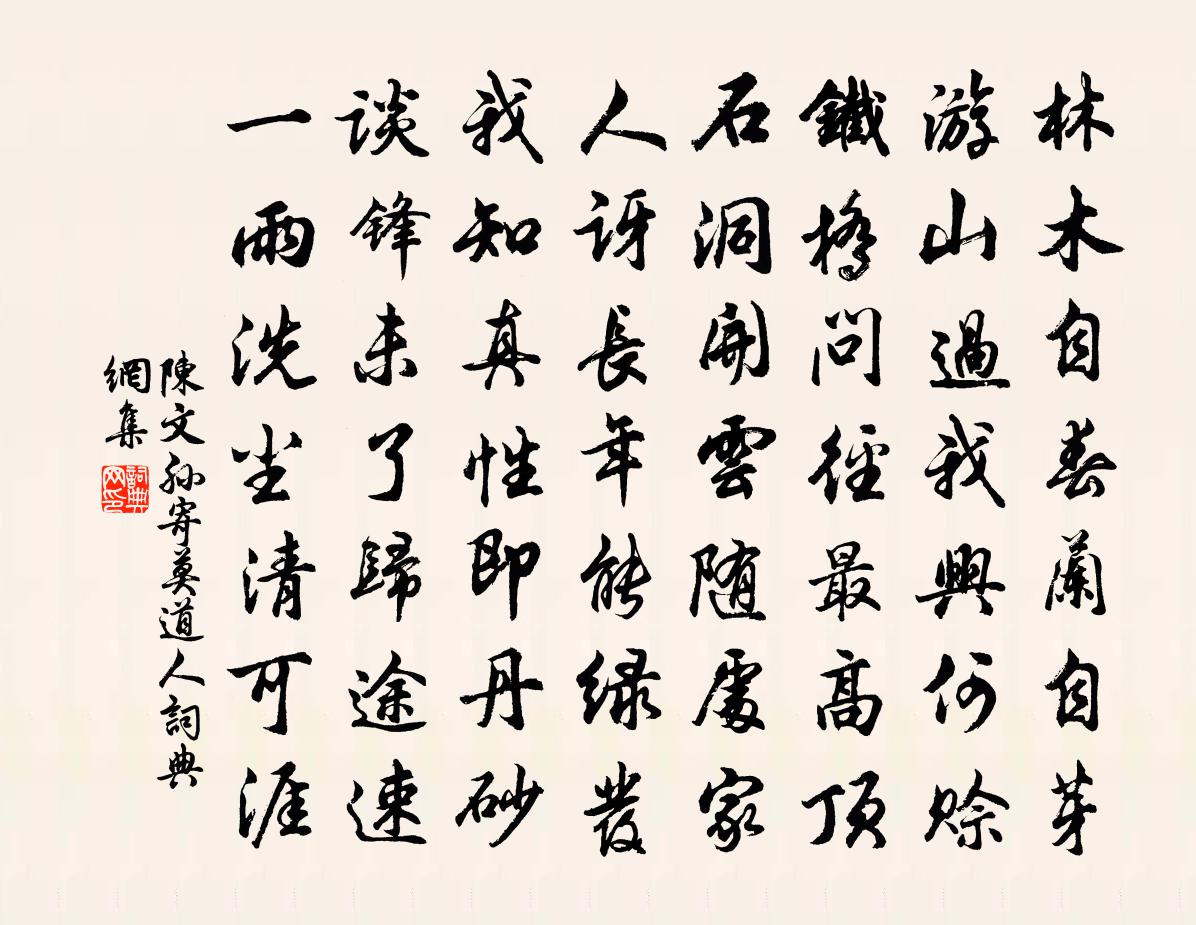 林木自春蘭自芽
游山過我興何賒
鐵橋問徑最高頂
石洞開雲随處家
人訝長年能緑髮
我知真性即丹砂
談鋒未了歸途速
一雨洗尘清可涯
陳文孙寄莫道人詞典
網集
詞典网印